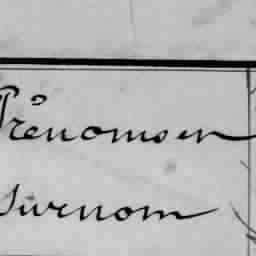 Prénoms en
Surnom